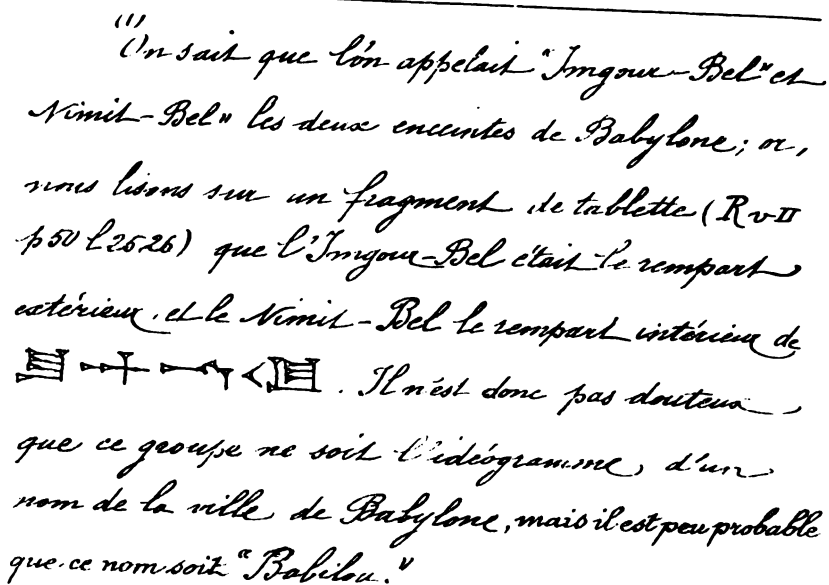 (1)
On sait que l'on appelait "Imgour-Bel" et
Nimit-Bel" les deux enceintes de Babylone; or,
nous lisons sur un fragment de tablette (R v II
p 50 l 25 26) que l'Imgour-Bel était le rempart
extérieur, et le Nimit-Bel le rempart intérieur de
. Il n'est donc pas douteux
que ce groupe ne soit l'idéogramme, d'un
nom de la ville de Babylone, mais il est peu probable
que ce nom soit "Babilou."